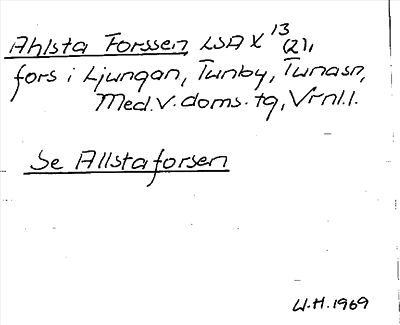 Ahlsta Forssen, LSA X 13 (2),
fors i Ljungan, Tunby, Tunasn,
Med.v.doms.tg, Vrnl.l.
Se Allstaforsen
W.H. 1969